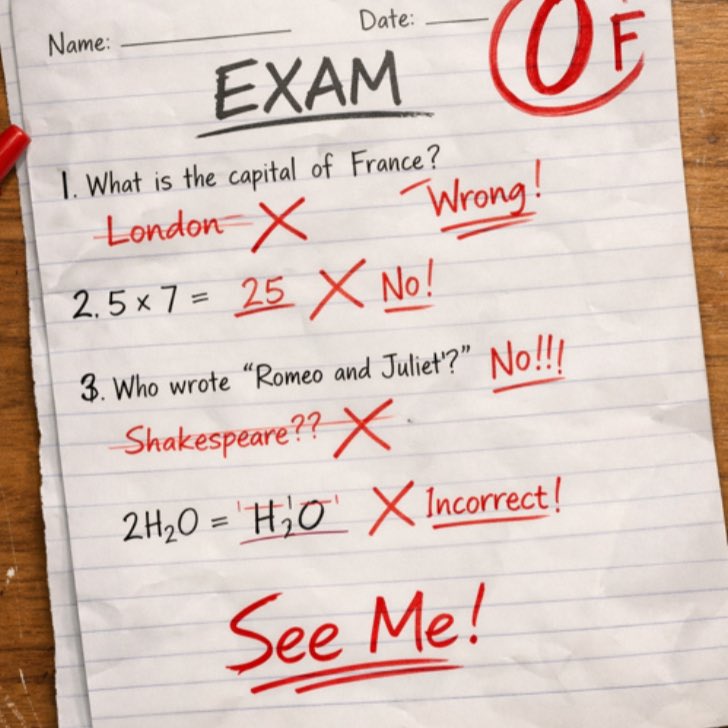 Name: Date:
0 F
EXAM
1. What is the capital of France?
London Wrong!
2. 5 x 7 = 25 No!
3. Who wrote “Romeo and Juliet'?” No!!!
Shakespeare??
2H₂O = 'H₂'O' Incorrect!
See Me!